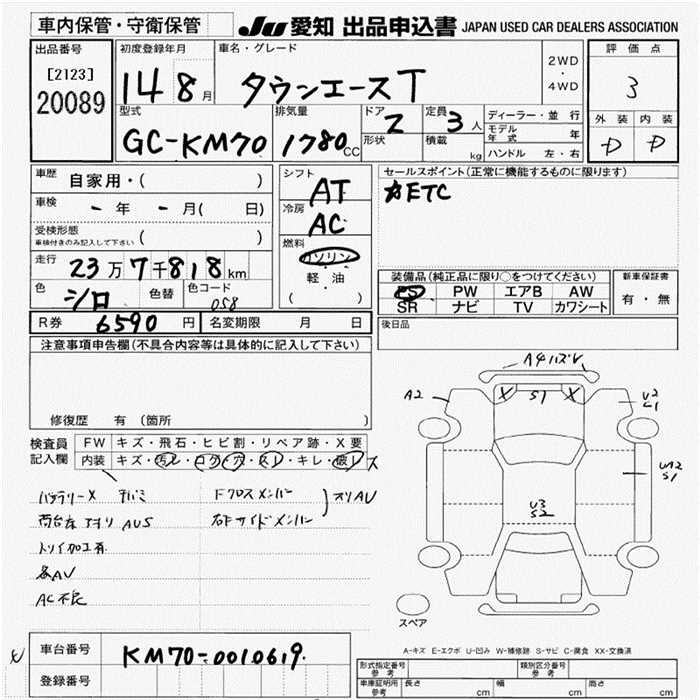 車内保管・守衛保管
JU 愛知 出品申込書 JAPAN USED CAR DEALERS ASSOCIATION
出品番号
[2123]
20089
初度登録年月
14 8月
車名・グレード
タウンエース T
2WD
・
4WD
評価点
3
外装 内装
D D
型式
GC-KM70
排気量
1780 CC
ドア
2
形状
定員
3人
積載
kg
ディーラー・並行
モデル年式 年
ハンドル 左・右
車歴
自家用・( )
車検
- 年 - 月( 日)
受検形態
車検付きのみ記入して下さい ( )
走行
23万7千818km
色
シロ
色替
色コード
058
シフト
AT
冷房
AC
燃料
ガソリン
軽・油
( )
セールスポイント(正常に機能するものに限ります)
☆ETC
装備品(純正品に限り○をつけてください)
PS PW エアB AW
SR ナビ TV カワシート
新車保証書
有・無
R券 6590円 名変期限 月 日
後日品
注意事項申告欄(不具合内容等は具体的に記入して下さい)
修復歴 有 (箇所 )
検査員記入欄
FW キズ・飛石・ヒビ割・リペア跡・X要
内装 キズ・汚レ・コゲ・穴・スレ・キレ・破レ ス
バッテリーX
Fクロスメンバー
右Fサイドメンバー
AC不良
A4 バズレ
A2
X S1 X
U2
C1
UA2
S1
U3
S2
スペア
A-キズ E-エクボ U-凹み W-補修跡 S-サビ C-腐食 XX-交換済
車台番号 KM70-0010619
登録番号
形式指定番号 参考
類別区分番号 参考
車庫証明用 参考 長さ cm 幅 cm 高さ cm